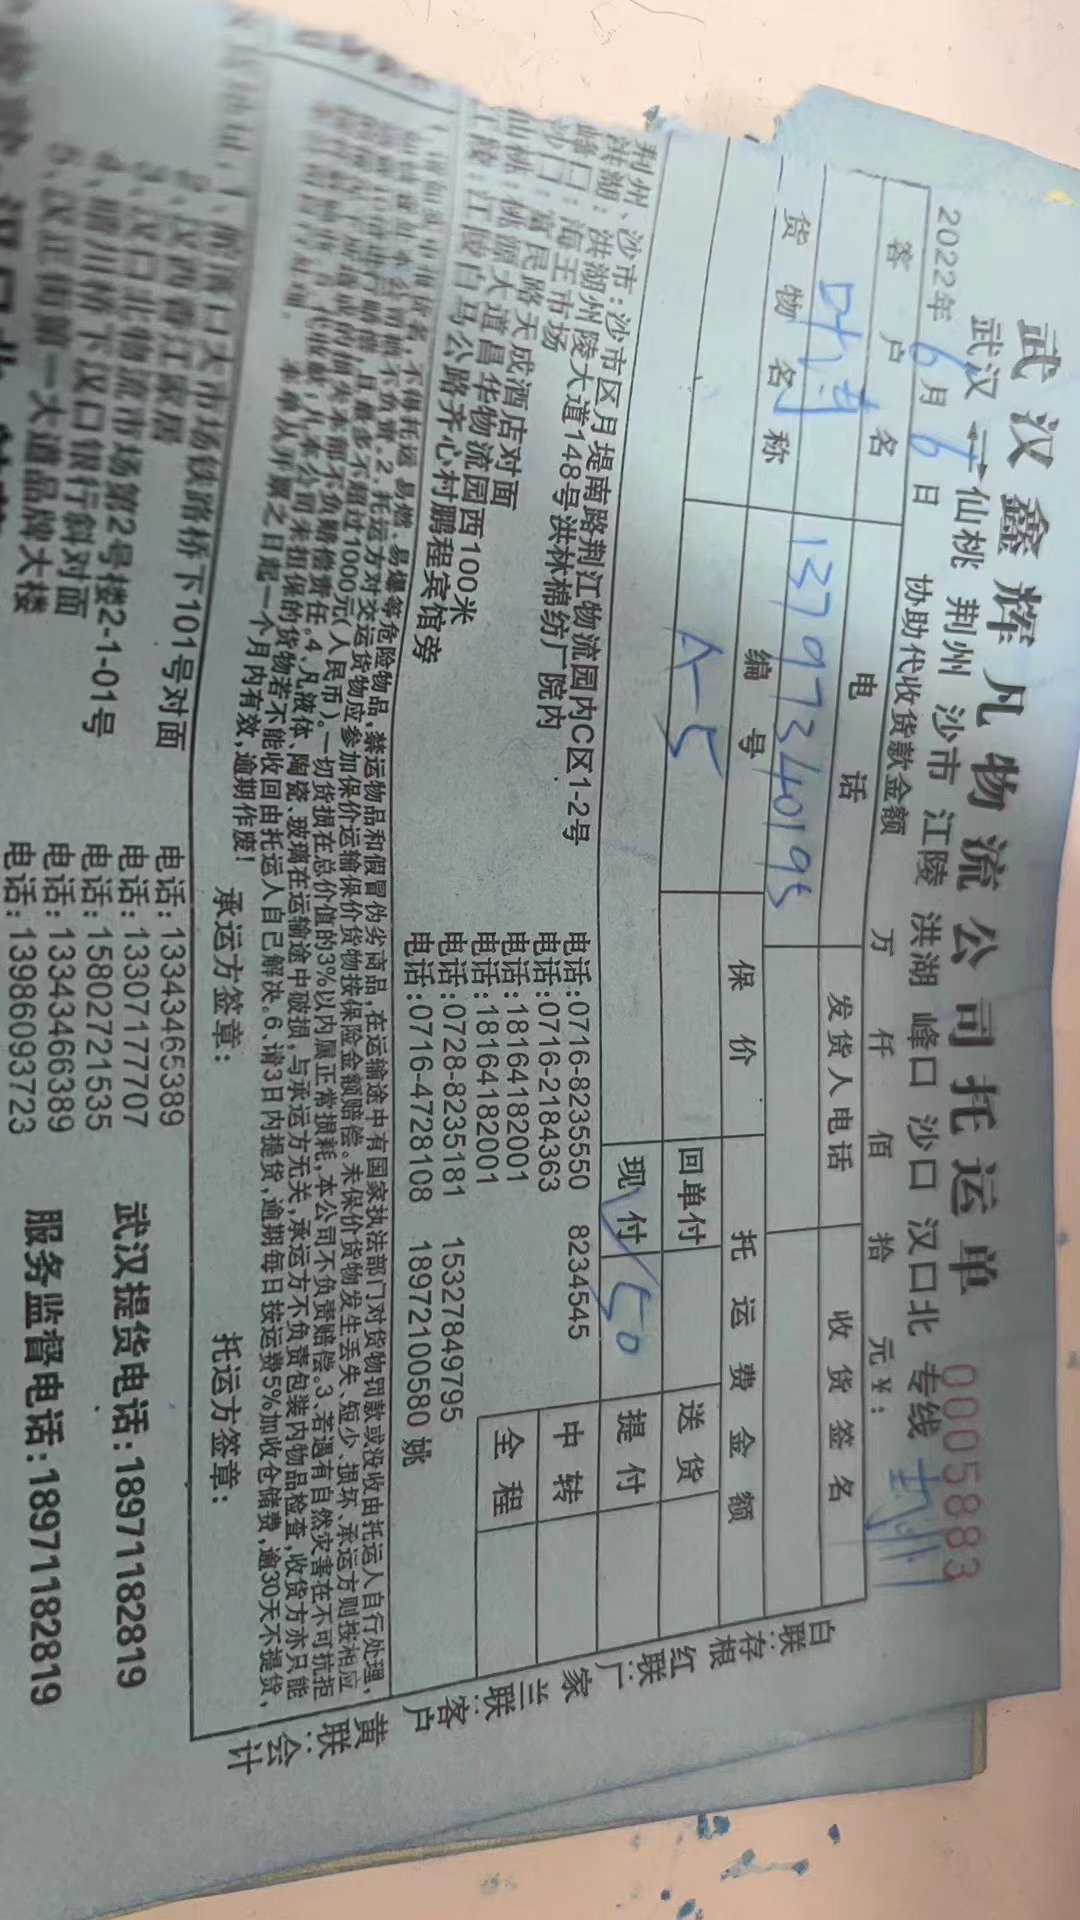 武汉鑫辉凡物流公司托运单
0005883
武汉 仙桃 荆州 沙市 江陵 洪湖 峰口 沙口 汉口北 专线
2022年6月6日 协助代收货款金额 万 仟 佰 拾 元¥:
客户名 电话 发货人电话 收货签名
13797340195
货物名称 编号 保价 托运费金额
A-5 回单付 送货
现付 50 提付
荆州、沙市:沙市区月堤南路荆江物流园内C区1-2号 电话:0716-8235550 8234545
洪湖:洪湖州陵大道148号洪林棉纺厂院内 电话:0716-2184363
峰口:海王市场 电话:18164182001
沙口:富民路天成酒店对面 电话:18164182001
仙桃:桃源大道昌华物流园西100米 电话:0728-8235181 15327849795
江陵:江陵白马公路齐心村鹏程宾馆旁 电话:0716-4728108 18972100580 姚
中转
全程
不得托运易燃、易爆等危险物品,禁运物品和假冒伪劣商品,在运输途中有国家执法部门对货物罚款或没收由托运人自行处理,
2.托运方对交运货物应参加保价运输保价货物按保险金额赔偿。未保价货物发生丢失、短少、损坏、承运方则按相应
最多不超过1000元(人民币)。一切货损在总价值的3%以内属正常损耗,本公司不负责赔偿。3.若遇有自然灾害在不可抗拒
负赔偿责任。4.凡液体、陶瓷、玻璃在运输途中破损,与承运方无关,承运方不负责包装内物品检查,收货方亦只能
本公司未担保的货物若不能收回由托运人自己解决。6.请3日内提货,逾期每日按运费5%加收仓储费,逾30天不提货,
本单从开票之日起一个月内有效,逾期作废!
承运方签章: 托运方签章:
大市场铁路桥下101号对面 电话:13343465389
电话:13307177707
3、汉口北物流市场第2号楼2-1-01号 电话:15802721535
4、晴川桥下汉口银行斜对面 电话:13343466389
5、汉正街第一大道品牌大楼 电话:13986093723
武汉提货电话:18971182819
服务监督电话:18971182819
白联:存根
红联:厂家
兰联:客户
黄联:会计